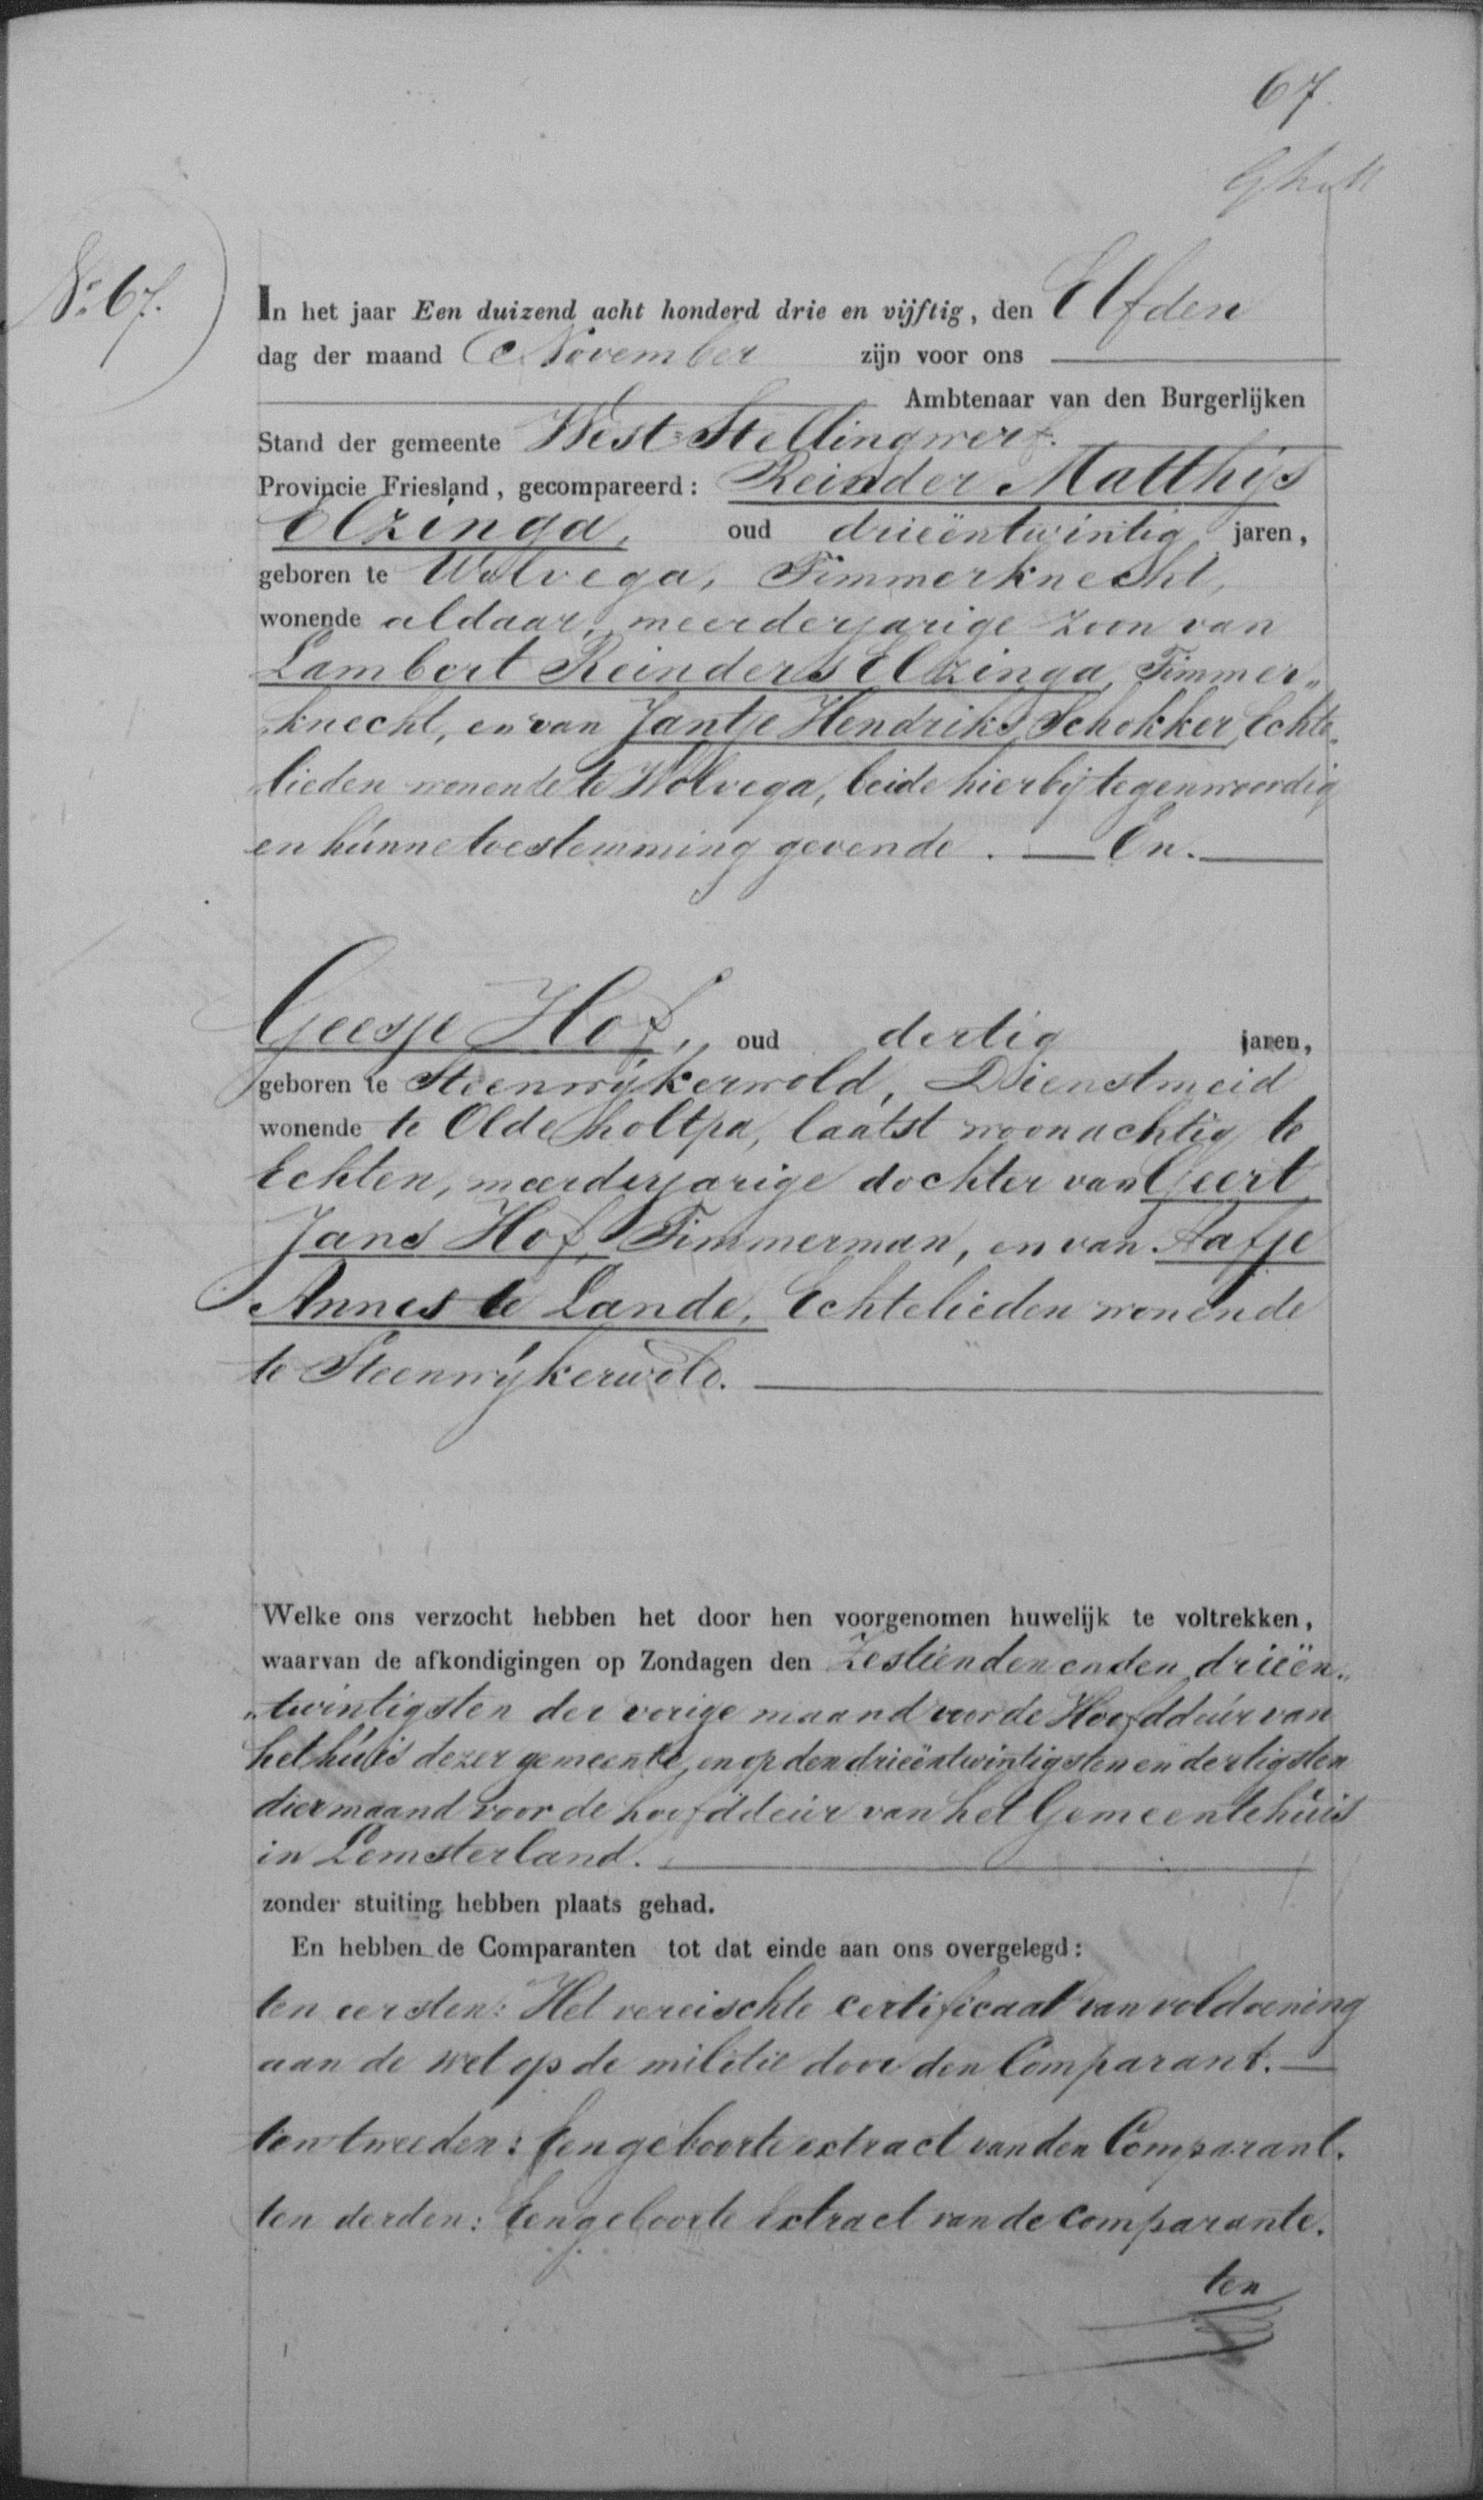 67.
No. 67.
In het jaar Een duizend acht honderd drie en vijftig, den Elfden
dag der maand November zijn voor ons
Ambtenaar van den Burgerlijken
Stand der gemeente West-Stellingwerf.
Provincie Friesland, gecompareerd: Reinder Matthijs
Elzinga, oud drieëntwintig jaren,
geboren te Wolvega, Timmerknecht,
wonende aldaar, meerderjarige zoon van
Lambert Reinders Elzinga, Timmer„
„knecht, en van Jantje Hendriks Schokker, Echte„
„lieden wonende te Wolvega, beide hierbij tegenwoordig
en húnne toestemming gevende. — En. —
Geesje Hof, oud dertig jaren,
geboren te Steenwijkerwold, Dienstmeid
wonende te Oldeholtpa, laatst woonachtig te
Echten, meerderjarige dochter van Geert
Jans Hof, Timmerman, en van Aafje
Annes te Lande, Echtelieden wonende
te Steenwijkerwold.
Welke ons verzocht hebben het door hen voorgenomen huwelijk te voltrekken,
waarvan de afkondigingen op Zondagen den Zestienden en den drieën„
„twintigsten der vorige maand voor de Hoofddeúr van
het húis dezer gemeente, en op den drieëntwintigsten en dertigsten
dier maand voor de hoofddeur van het Gemeentehuis
in Lemsterland.
zonder stuiting hebben plaats gehad.
En hebben de Comparanten tot dat einde aan ons overgelegd:
ten eersten: Het vereischte certificaat van voldoening
aan de wet op de militie door den Comparant. —
ten tweeden: Een geboorte extract van den Comparant.
ten derden: Een geboorte Extract van de Comparante.
ten